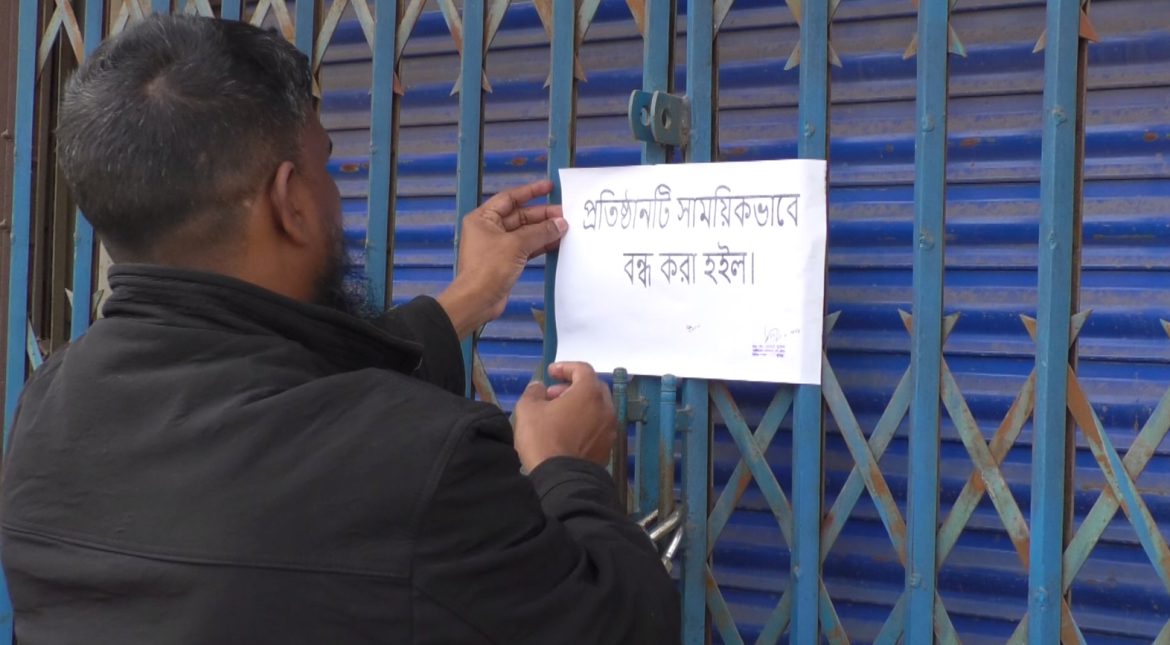 প্রতিষ্ঠানটি সাময়িকভাবে
বন্ধ করা হইল।